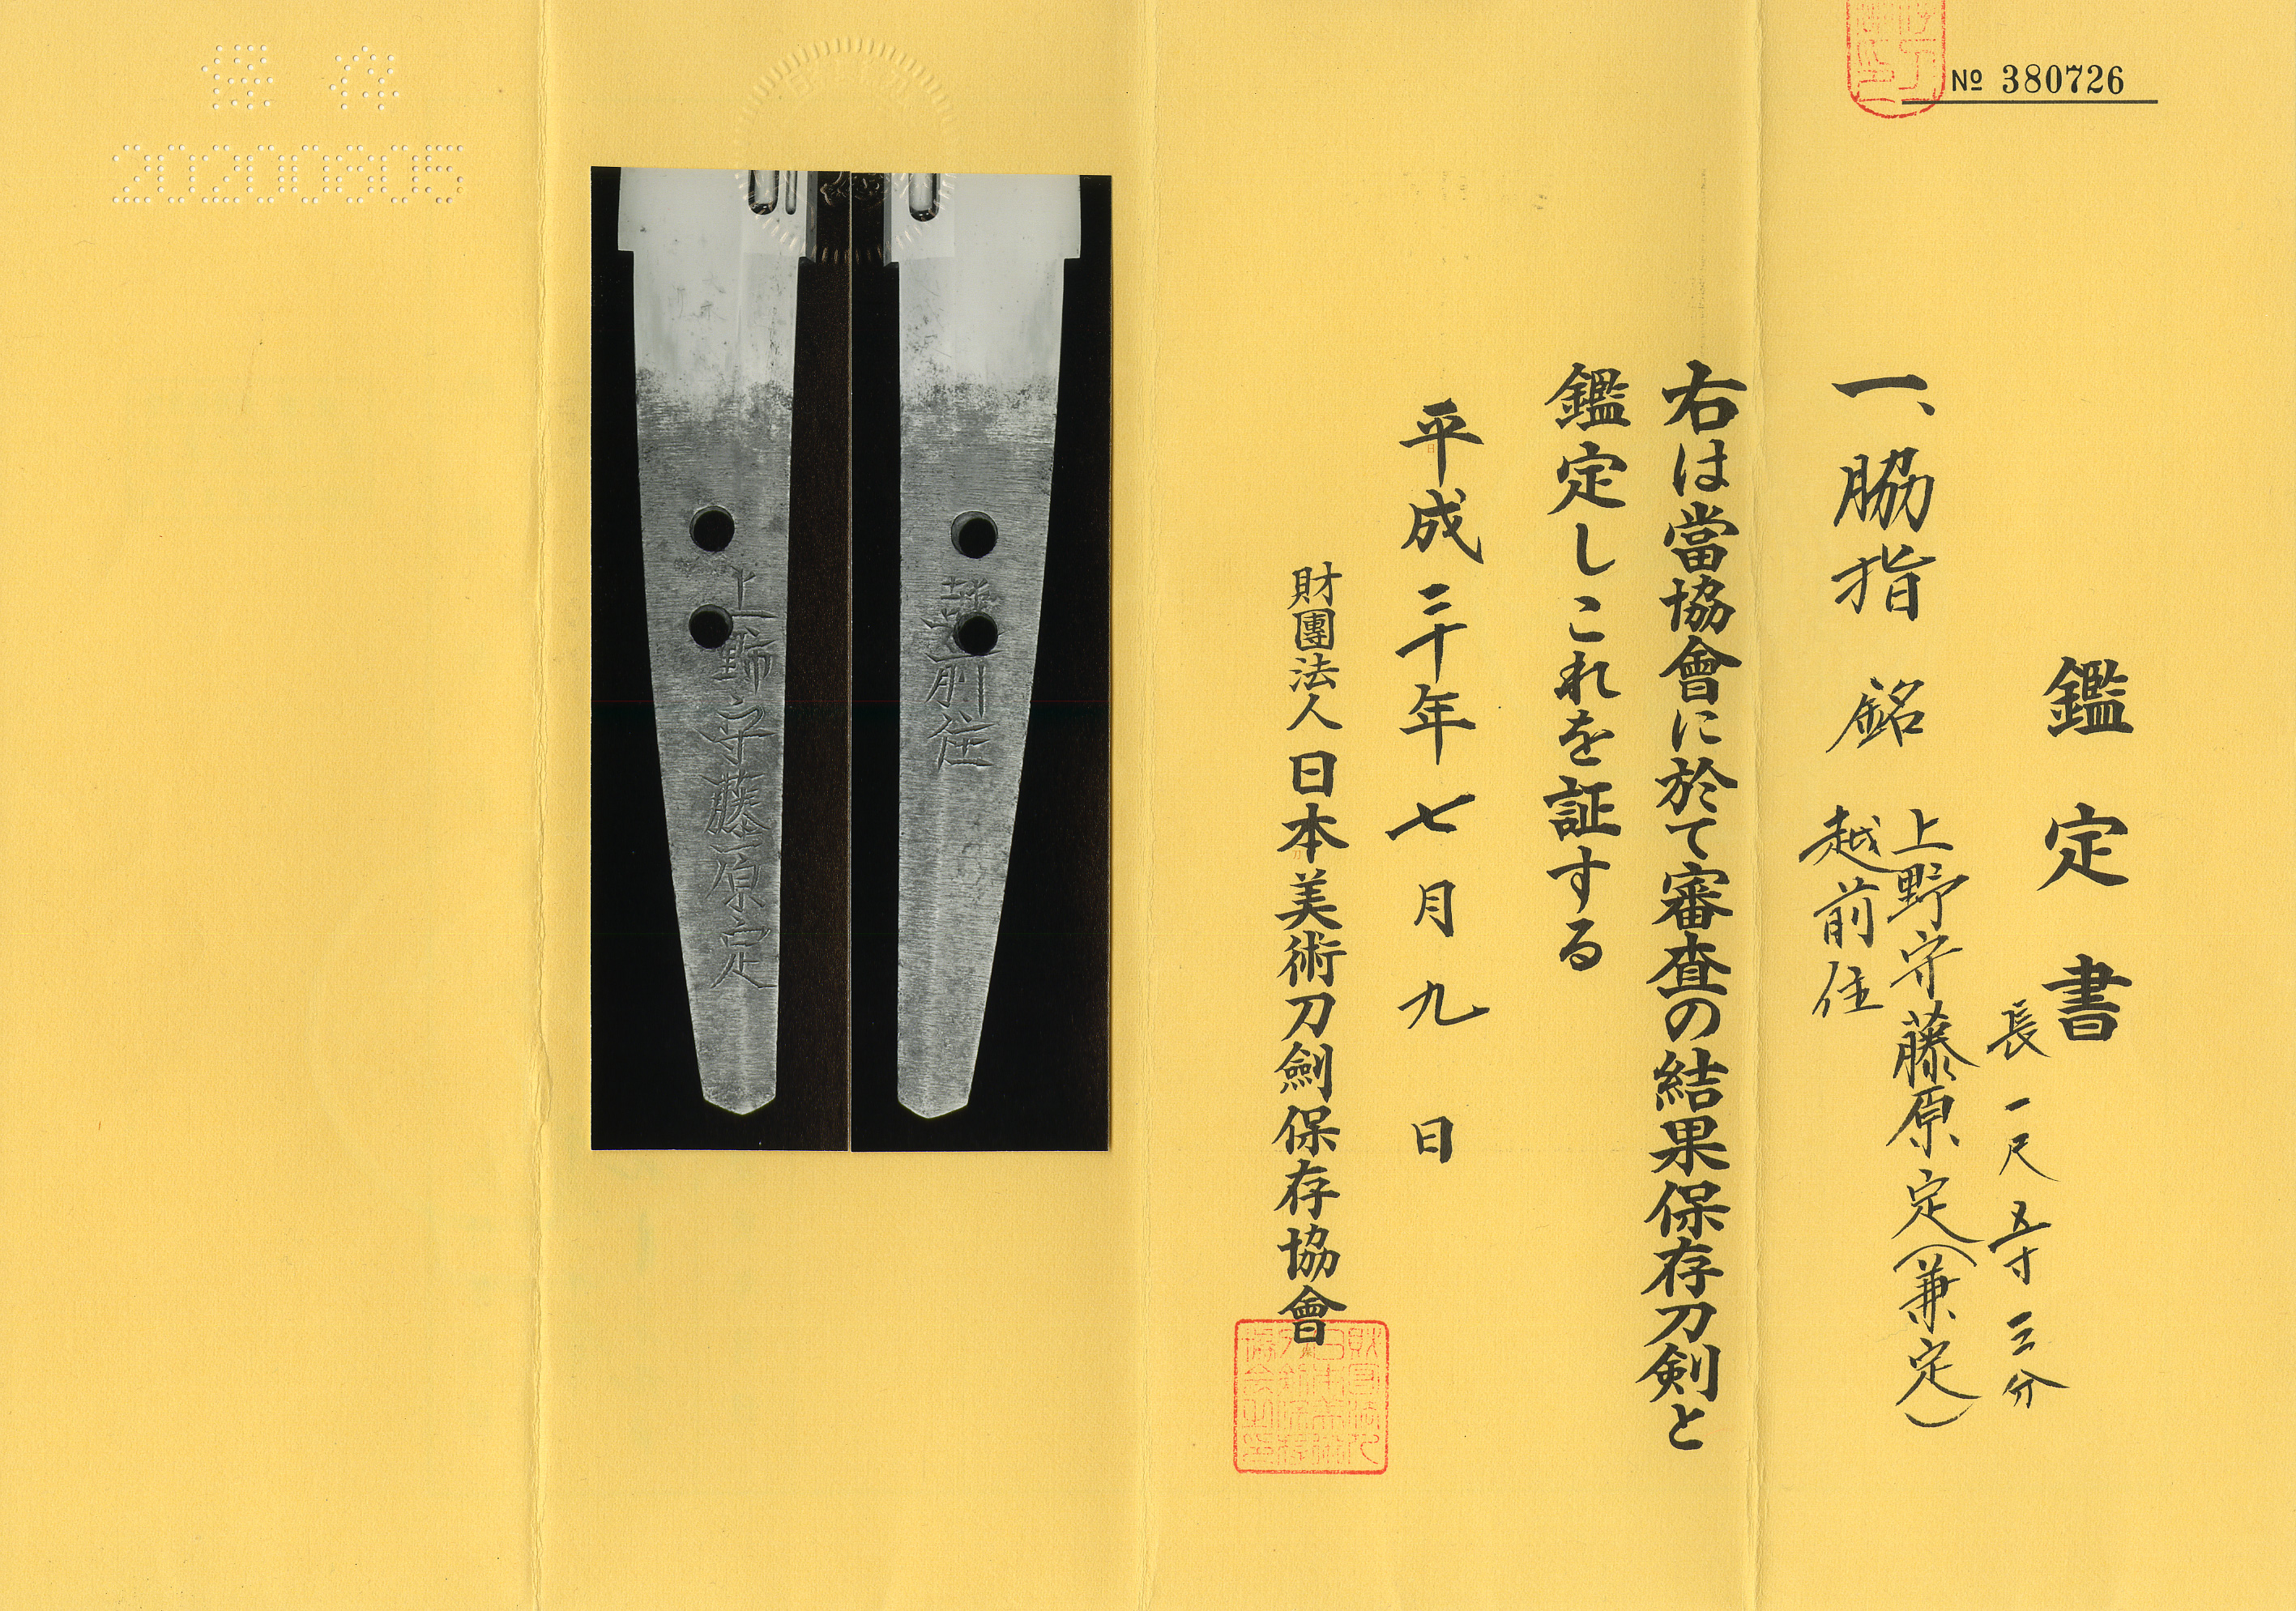 No 380726
鑑定書
長一尺五寸三分
一、脇指 銘 上野守藤原定(兼定)
越前住
右は當協會に於て審査の結果保存刀剣と
鑑定しこれを証する
平成三十年七月九日
財團法人日本美術刀劍保存協會
越前住
上野守藤原定
保存
20200805